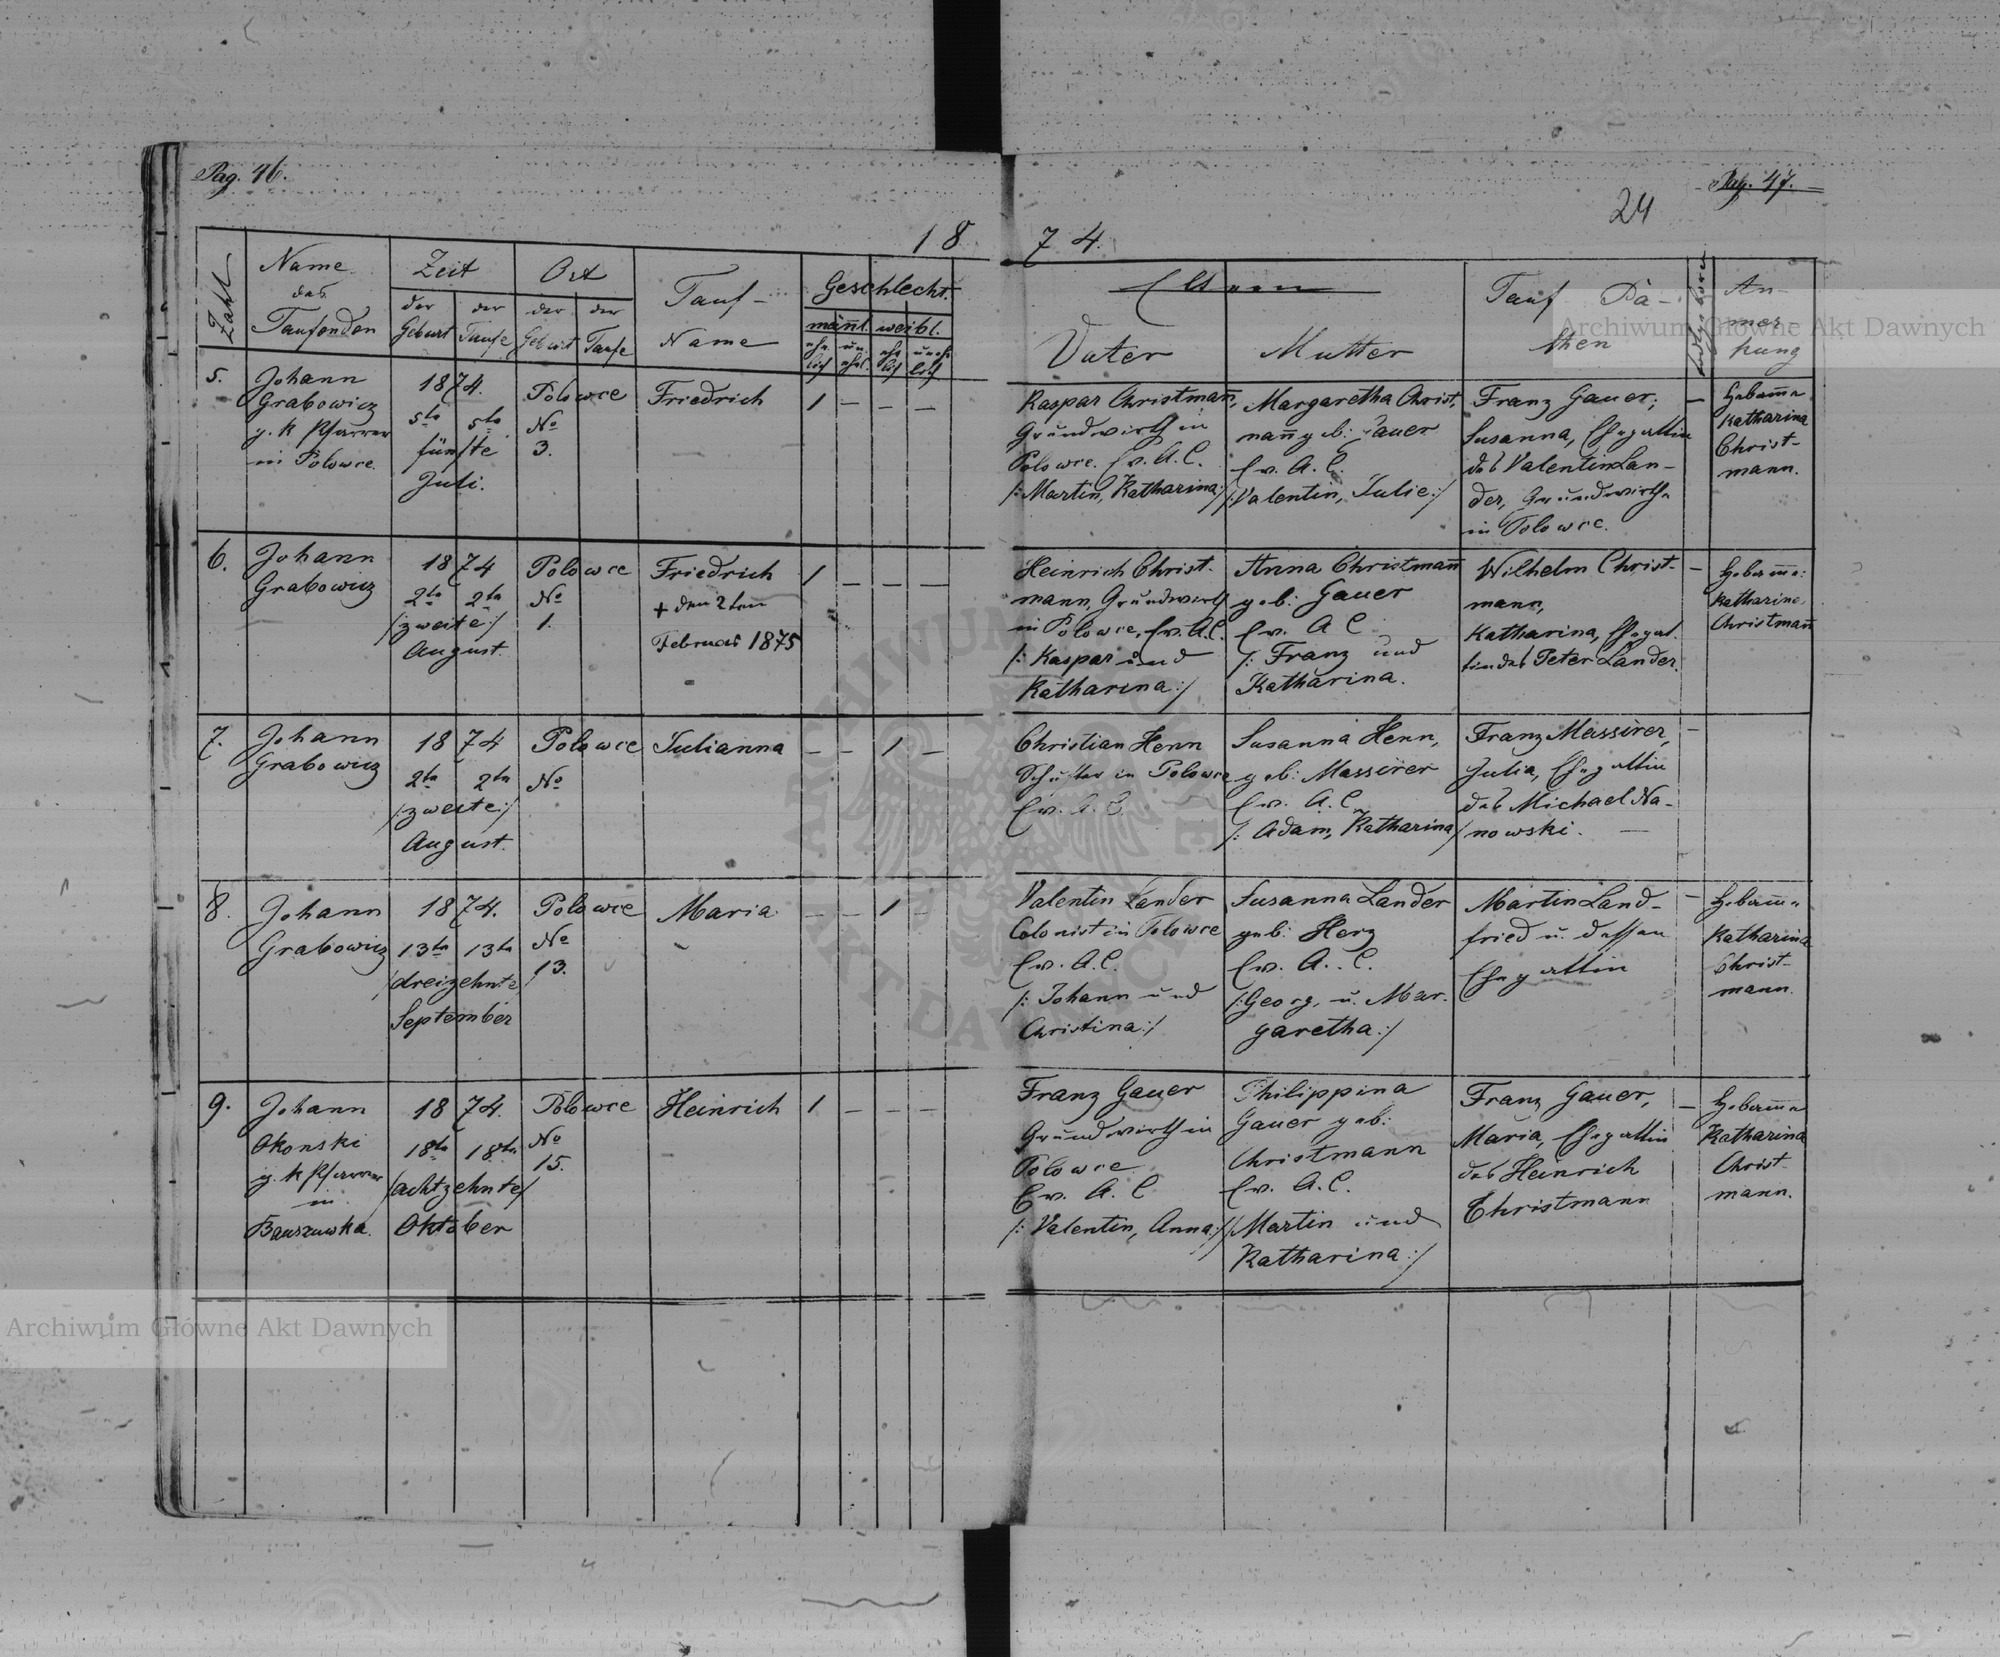 Pag. 46.
Pag. 47.
24
18 74.
Zahl
Name
des
Taufenden
Zeit
der
Geburt
der
Taufe
Ort
der
Geburt
der
Taufe
Tauf-
Name
Geschlecht.
mänl.
weibl.
ehe
lich
un
ehel.
ehe
lich
unehe
lich
Eltern
Vater
Mutter
Tauf Pa-
then
An-
mer-
kung
5.
Johann
Grabowicz
g. k Pfarrer
in Polowce.
1874.
5te 5te
fünfte
Juli.
Polowce
No
3.
Friedrich
1 — — —
Kaspar Christmañ,
Grundwirth in
Polowce. Ev. A. C.
/: Martin, Katharina:/
Margaretha Christ,
mañ geb: Gauer
Ev. A. C.
/: Valentin, Julie:/
Franz Gauer,
Susanna, Ehegattin
des Valentin Lan-
der, Grundwirth
in Polowce.
—
Hebam̄e
Katharina
Christ-
mann.
6.
Johann
Grabowicz
1874
2te 2te
/zweite:/
August.
Polowce
No
1.
Friedrich
+ den 2ten
Februar 1875
1 — — —
Heinrich Christ-
mann, Grundwirth
in Polowce, Ev. A. C.
/: Kaspar und
Katharina:/
Anna Christmañ
geb: Gauer
Ev. A C.
/: Franz und
Katharina.
Wilhelm Christ-
mann,
Katharina, Ehegat-
tin des Peter Lander.
—
Hebam̄e:
Katharine
Christmañ
7.
Johann
Grabowicz
1874
2te 2te
/zweite:/
August.
Polowce
No
Julianna
— — 1 —
Christian Henn
Schuster in Polowce
Ev. A. C.
Susanna Henn,
geb: Massirer
Ev. A. C.
/: Adam, Katharina/
Franz Massirer,
Julia, Ehegattin
des Michael Na-
nowski. —
—
8.
Johann
Grabowicz
1874.
13te 13te
/dreizehnte/
September
Polowce
No
13.
Maria
— — 1 —
Valentin Lander
Colonist in Polowce
Ev. A. C.
/: Johann und
Christina:/
Susanna Lander
geb: Herz
Ev. A. C.
/: Georg, u. Mar-
garetha:/
Martin Land-
fried u. dessen
Ehegattin
—
Hebam̄e
Katharina
Christ-
mann.
9.
Johann
Okonski
g. k Pfarrer
in
1874.
18te 18te
/achtzehnte/
Oktober
Polowce
No
15.
Heinrich
1 — — —
Franz Gauer
Grundwirth in
Polowce
Ev. A. C
/: Valentin, Anna:/
Philippina
Gauer geb:
Christmann
Ev. A. C.
/: Martin und
Katharina:/
Franz Gauer,
Maria, Ehegattin
des Heinrich
Christmann
—
Hebam̄e
Katharina
Christ-
mann.
Archiwum Główne Akt Dawnych
Archiwum Główne Akt Dawnych
ARCHIWUM GŁÓWNE
AKT DAWNYCH